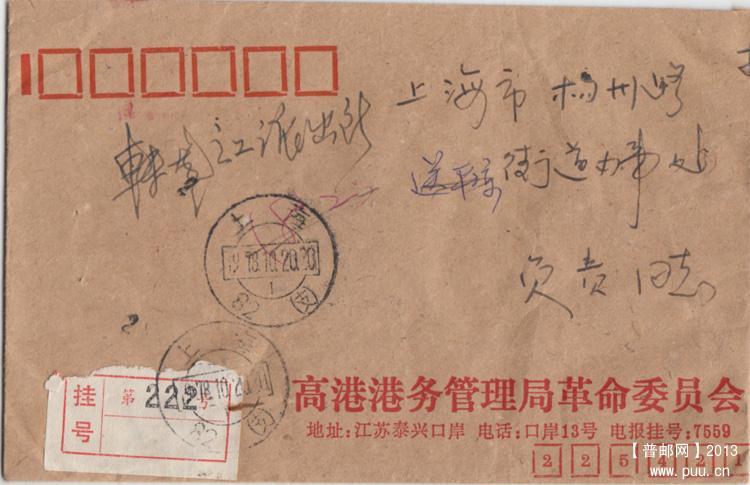 上海市 扬州路
街道办事处
负责同志
派出所
上海
1978.10.20.20
1
82
上海
1978.10.20
挂号
第 222 号
高港港务管理局革命委员会
地址:江苏泰兴口岸 电话:口岸13号 电报挂号:7559
2 2 5 4 2 1
【普邮网】2013
www.puu.cn